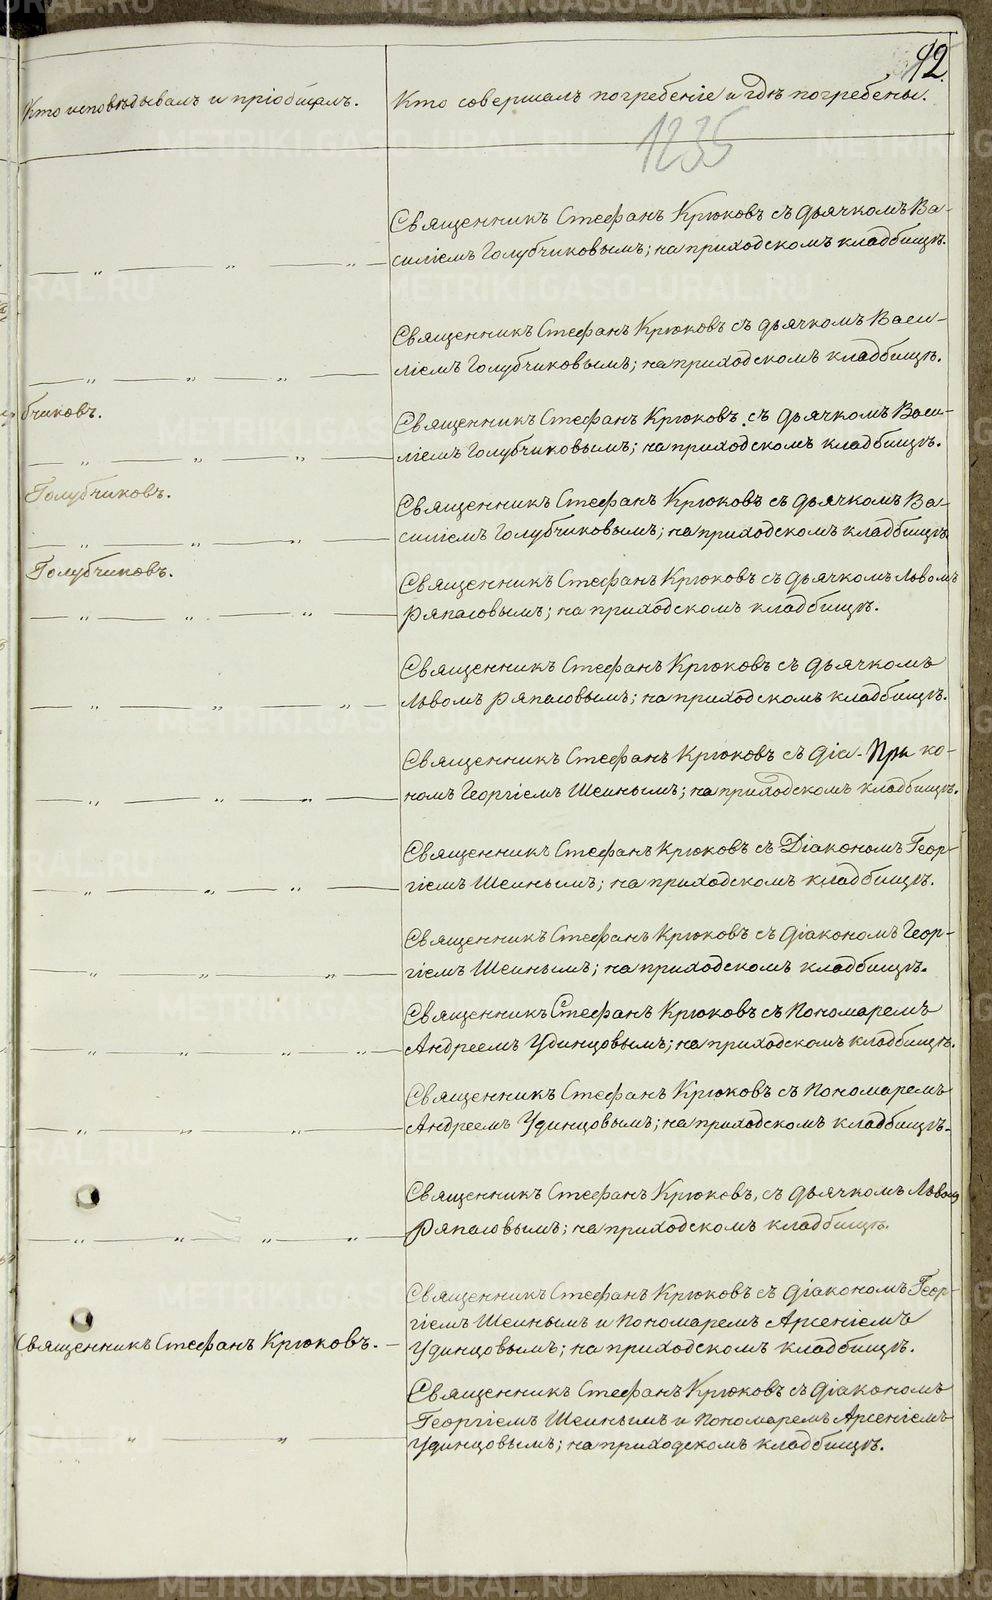 92.
Кто исповѣдывалъ и пріобщалъ.
Кто совершалъ погребеніе и гдѣ погребены.
1235
Священникъ Стефанъ Крюковъ съ дьячкомъ Ва-
силіемъ Голубчиковымъ; на приходскомъ кладбищѣ.
Священникъ Стефанъ Крюковъ съ дьячкомъ Васи-
ліемъ Голубчиковымъ; на приходскомъ кладбищѣ.
бчиковъ.
Священникъ Стефанъ Крюковъ, съ дьячкомъ Васи-
ліемъ Голубчиковымъ; на приходскомъ кладбищѣ.
Голубчиковъ.
Священникъ Стефанъ Крюковъ съ дьячкомъ Ва-
силіемъ Голубчиковымъ; на приходскомъ кладбищѣ.
Голубчиковъ.
Священникъ Стефанъ Крюковъ съ дьячкомъ Львомъ
Ряпасовымъ; на приходскомъ кладбищѣ.
Священникъ Стефанъ Крюковъ съ дьячкомъ
Львомъ Ряпасовымъ; на приходскомъ кладбищѣ.
Священникъ Стефанъ Крюковъ съ діа- При ко-
номъ Георгіемъ Шеинымъ; на приходскомъ кладбищѣ.
Священникъ Стефанъ Крюковъ съ Діакономъ Геор-
гіемъ Шеинымъ; на приходскомъ кладбищѣ.
Священникъ Стефанъ Крюковъ съ діакономъ Геор-
гіемъ Шеинымъ; на приходскомъ кладбищѣ.
Священникъ Стефанъ Крюковъ съ Пономаремъ
Андреемъ Удинцовымъ; на приходскомъ кладбищѣ.
Священникъ Стефанъ Крюковъ съ Пономаремъ
Андреемъ Удинцовымъ; на приходскомъ кладбищѣ.
Священникъ Стефанъ Крюковъ, съ дьячкомъ Львомъ
Ряпасовымъ; на приходскомъ кладбищѣ.
Священникъ Стефанъ Крюковъ съ діакономъ Геор-
гіемъ Шеинымъ и Пономаремъ Арсеніемъ
Священникъ Стефанъ Крюковъ. —
Удинцовымъ; на приходскомъ кладбищѣ.
Священникъ Стефанъ Крюковъ съ діакономъ
Георгіемъ Шеинымъ и Пономаремъ Арсеніемъ
Удинцовымъ; на приходскомъ кладбищѣ.
METRIKI.GASO-URAL.RU